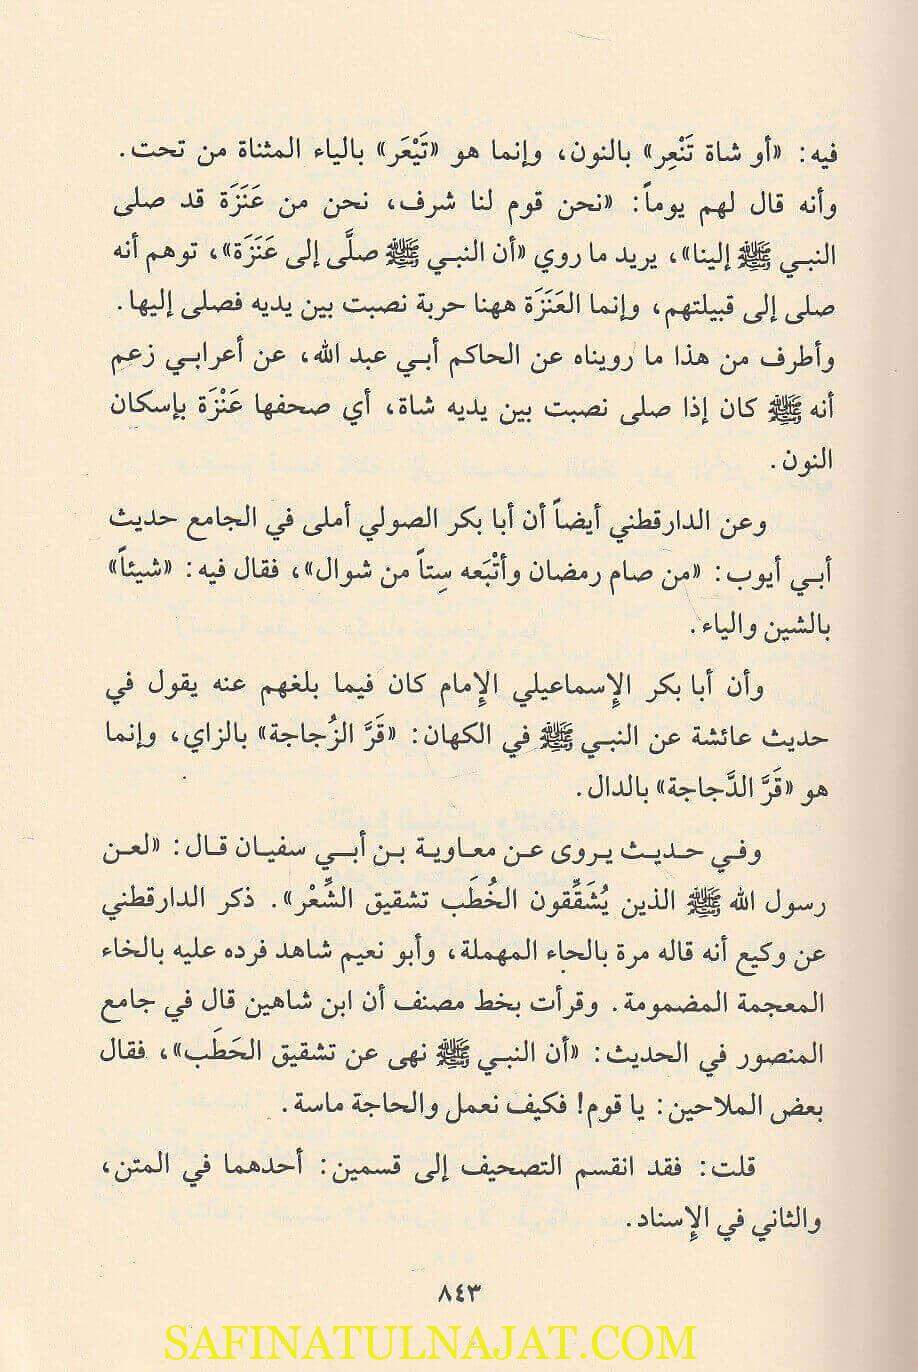 فيه: «أو شاة تَنْعِر» بالنون، وإنما هو «تَيْعَر» بالياء المثناة من تحت.
وأنه قال لهم يوماً: «نحن قوم لنا شرف، نحن من عَنَزَة قد صلى
النبي ﷺ إلينا»، يريد ما روي «أن النبي ﷺ صلَّى إلى عَنَزَة»، توهم أنه
صلى إلى قبيلتهم، وإنما العَنَزَة ههنا حربة نصبت بين يديه فصلى إليها.
وأطرف من هذا ما رويناه عن الحاكم أبي عبد الله، عن أعرابي زعم
أنه ﷺ كان إذا صلى نصبت بين يديه شاة، أي صحفها عَنْزَة بإسكان
النون.
وعن الدارقطني أيضاً أن أبا بكر الصولي أملى في الجامع حديث
أبي أيوب: «من صام رمضان وأتْبَعه سِتاً من شوال»، فقال فيه: «شيئاً»
بالشين والياء.
وأن أبا بكر الإسماعيلي الإمام كان فيما بلغهم عنه يقول في
حديث عائشة عن النبي ﷺ في الكهان: «قَرَّ الزُجاجة» بالزاي، وإنما
هو «قَرَّ الدَّجاجة» بالدال.
وفي حديث يروى عن معاوية بن أبي سفيان قال: «لعن
رسول الله ﷺ الذين يُشَقِّقون الخُطَب تشقيق الشِّعْر». ذكر الدارقطني
عن وكيع أنه قاله مرة بالحاء المهملة، وأبو نعيم شاهد فرده عليه بالخاء
المعجمة المضمومة. وقرأت بخط مصنف أن ابن شاهين قال في جامع
المنصور في الحديث: «أن النبي ﷺ نهى عن تشقيق الحَطَب»، فقال
بعض الملاحين: يا قوم! فكيف نعمل والحاجة ماسة.
قلت: فقد انقسم التصحيف إلى قسمين: أحدهما في المتن،
والثاني في الإسناد.
٨٤٣
SAFINATULNAJAT.COM